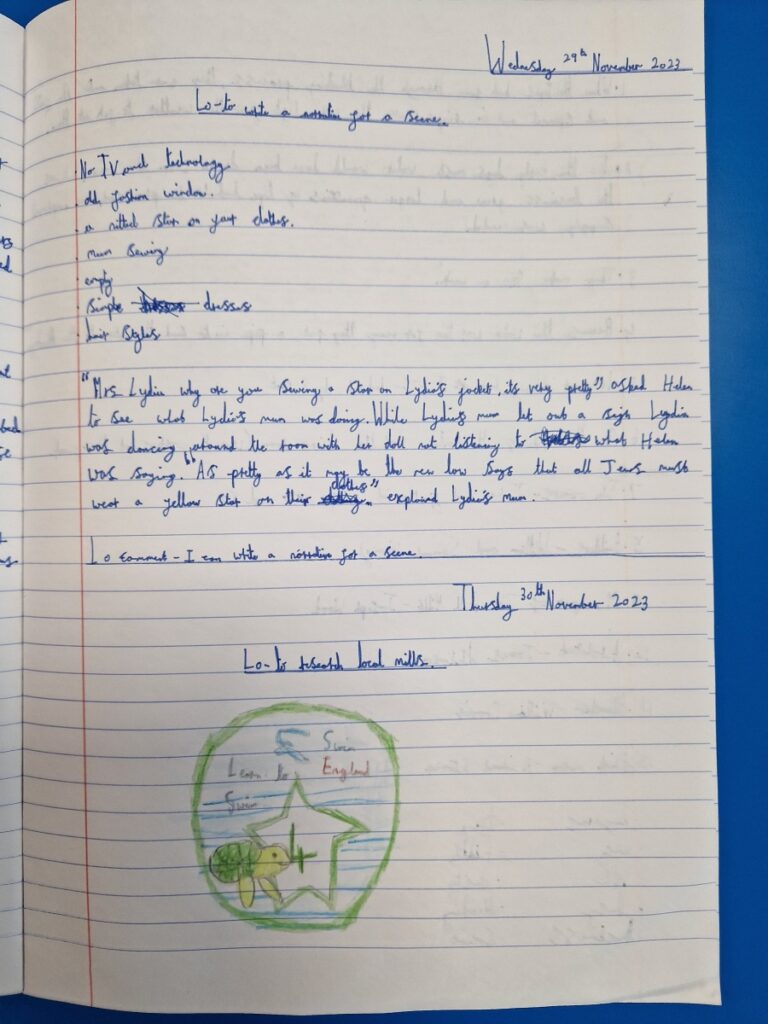 Wednesday 29th November 2023
Lo-to write a narrative for a scene.
No TV and technology
old fashion window.
a nitted star on your clothes.
mum sewing
empty
simple dresses
hair styles
"Mrs Lydia why are you sewing a star on Lydia's jacket, its very pretty" asked Helen
to see what Lydia's mum was doing. While Lydia's mum let out a sigh Lydia
was dancing around the room with her doll not listening to what Helen
was saying. "As pretty as it may be the new law says that all Jews must
wear a yellow star on their clothes" explained Lydia's mum.
Lo comment - I can write a narrative for a scene.
Thursday 30th November 2023
Lo- to research local mills.
Swim
Learn to England
Swim
4